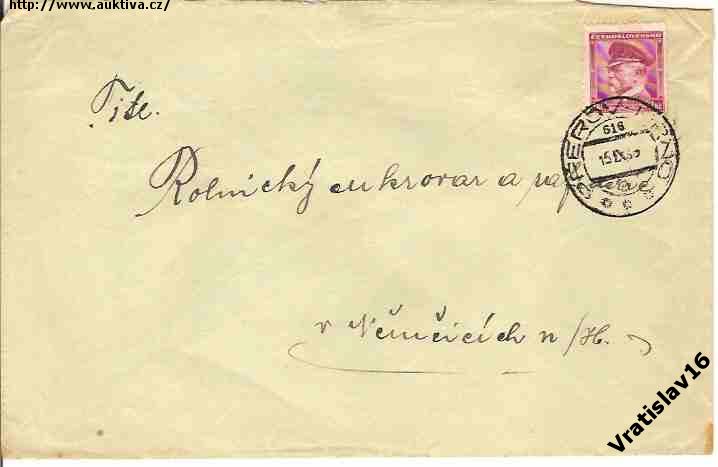 http://www.auktiva.cz/
ČESKOSLOVENSKO
Titl.
616
PŘEROV - BRNO
15.IX.
Rolnický cukrovar a rafinerie
v Němčicích n/H.
Vratislav16